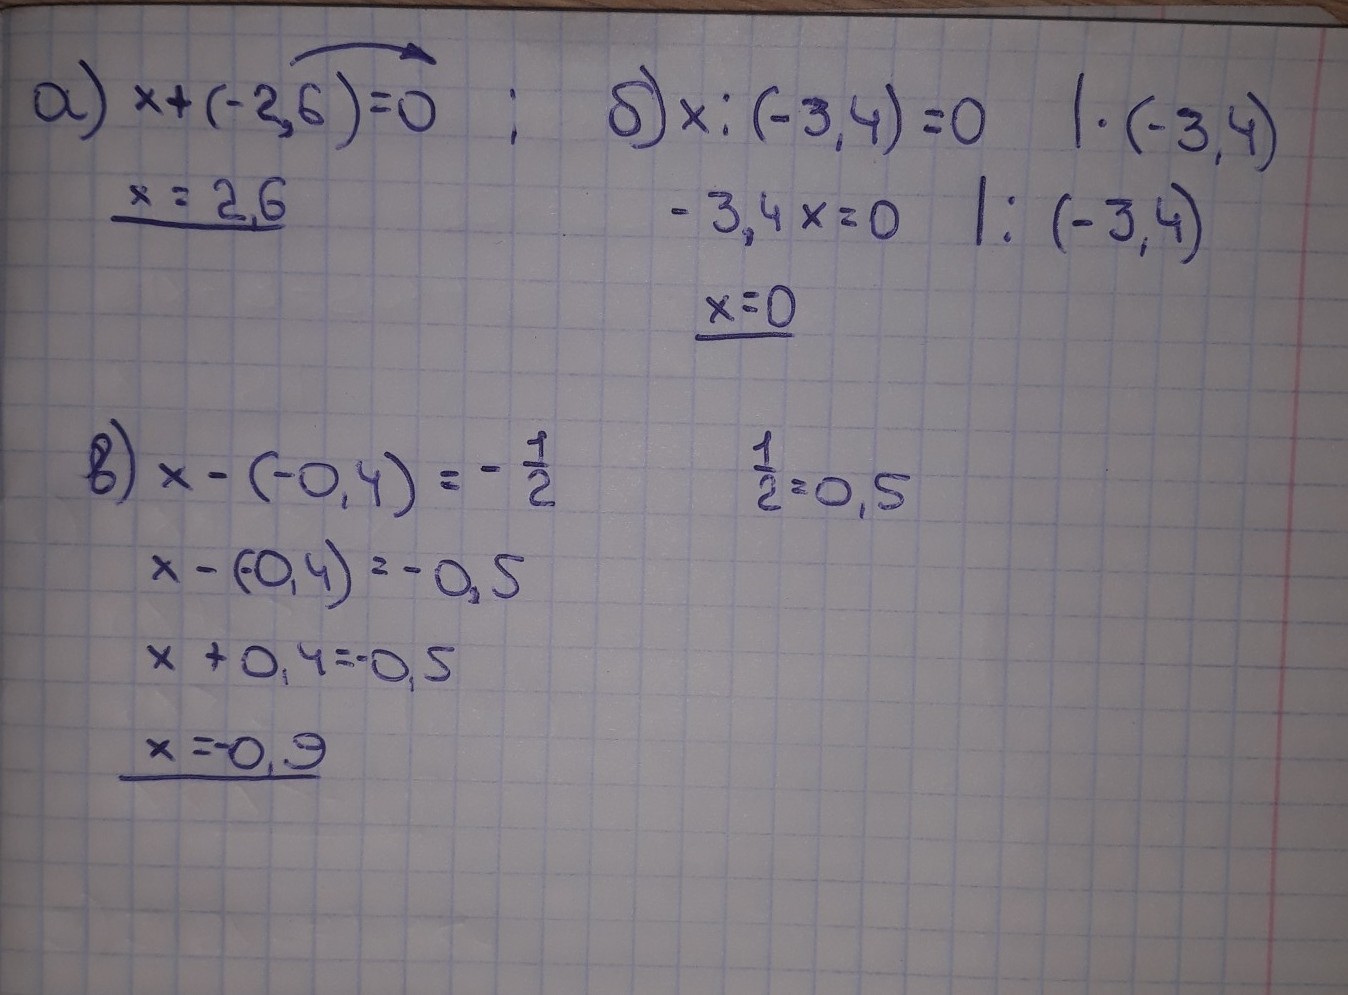 а) x+(-2,6)=0 ; б) x:(-3,4)=0 |·(-3,4)
x=2,6 -3,4x=0 |:(-3,4)
x=0
в) x-(-0,4)=-1/2 1/2=0,5
x-(-0,4)=-0,5
x+0,4=-0,5
x=-0,9